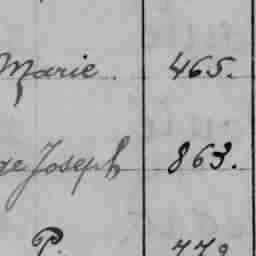 Marie. 465.
ge Joseph 863.
P. 779